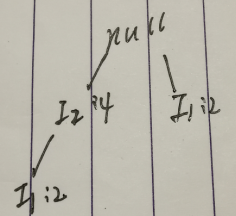 null
I2:4
I1:2
I1:2